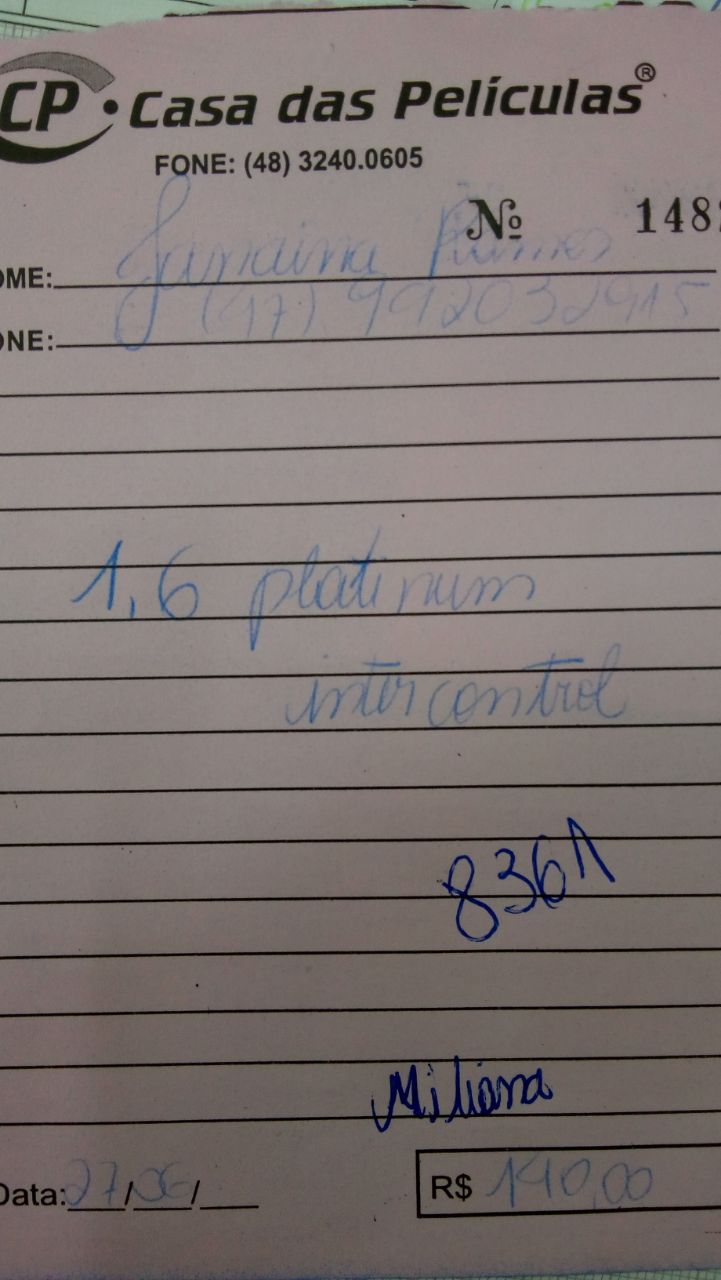 CP • Casa das Películas®
FONE: (48) 3240.0605
Nº 148
OME: Janaina
ONE: (47) 992032915
1,6 platinum
intercontrol
8361
Miliana
Data: 27/06/
R$ 140,00